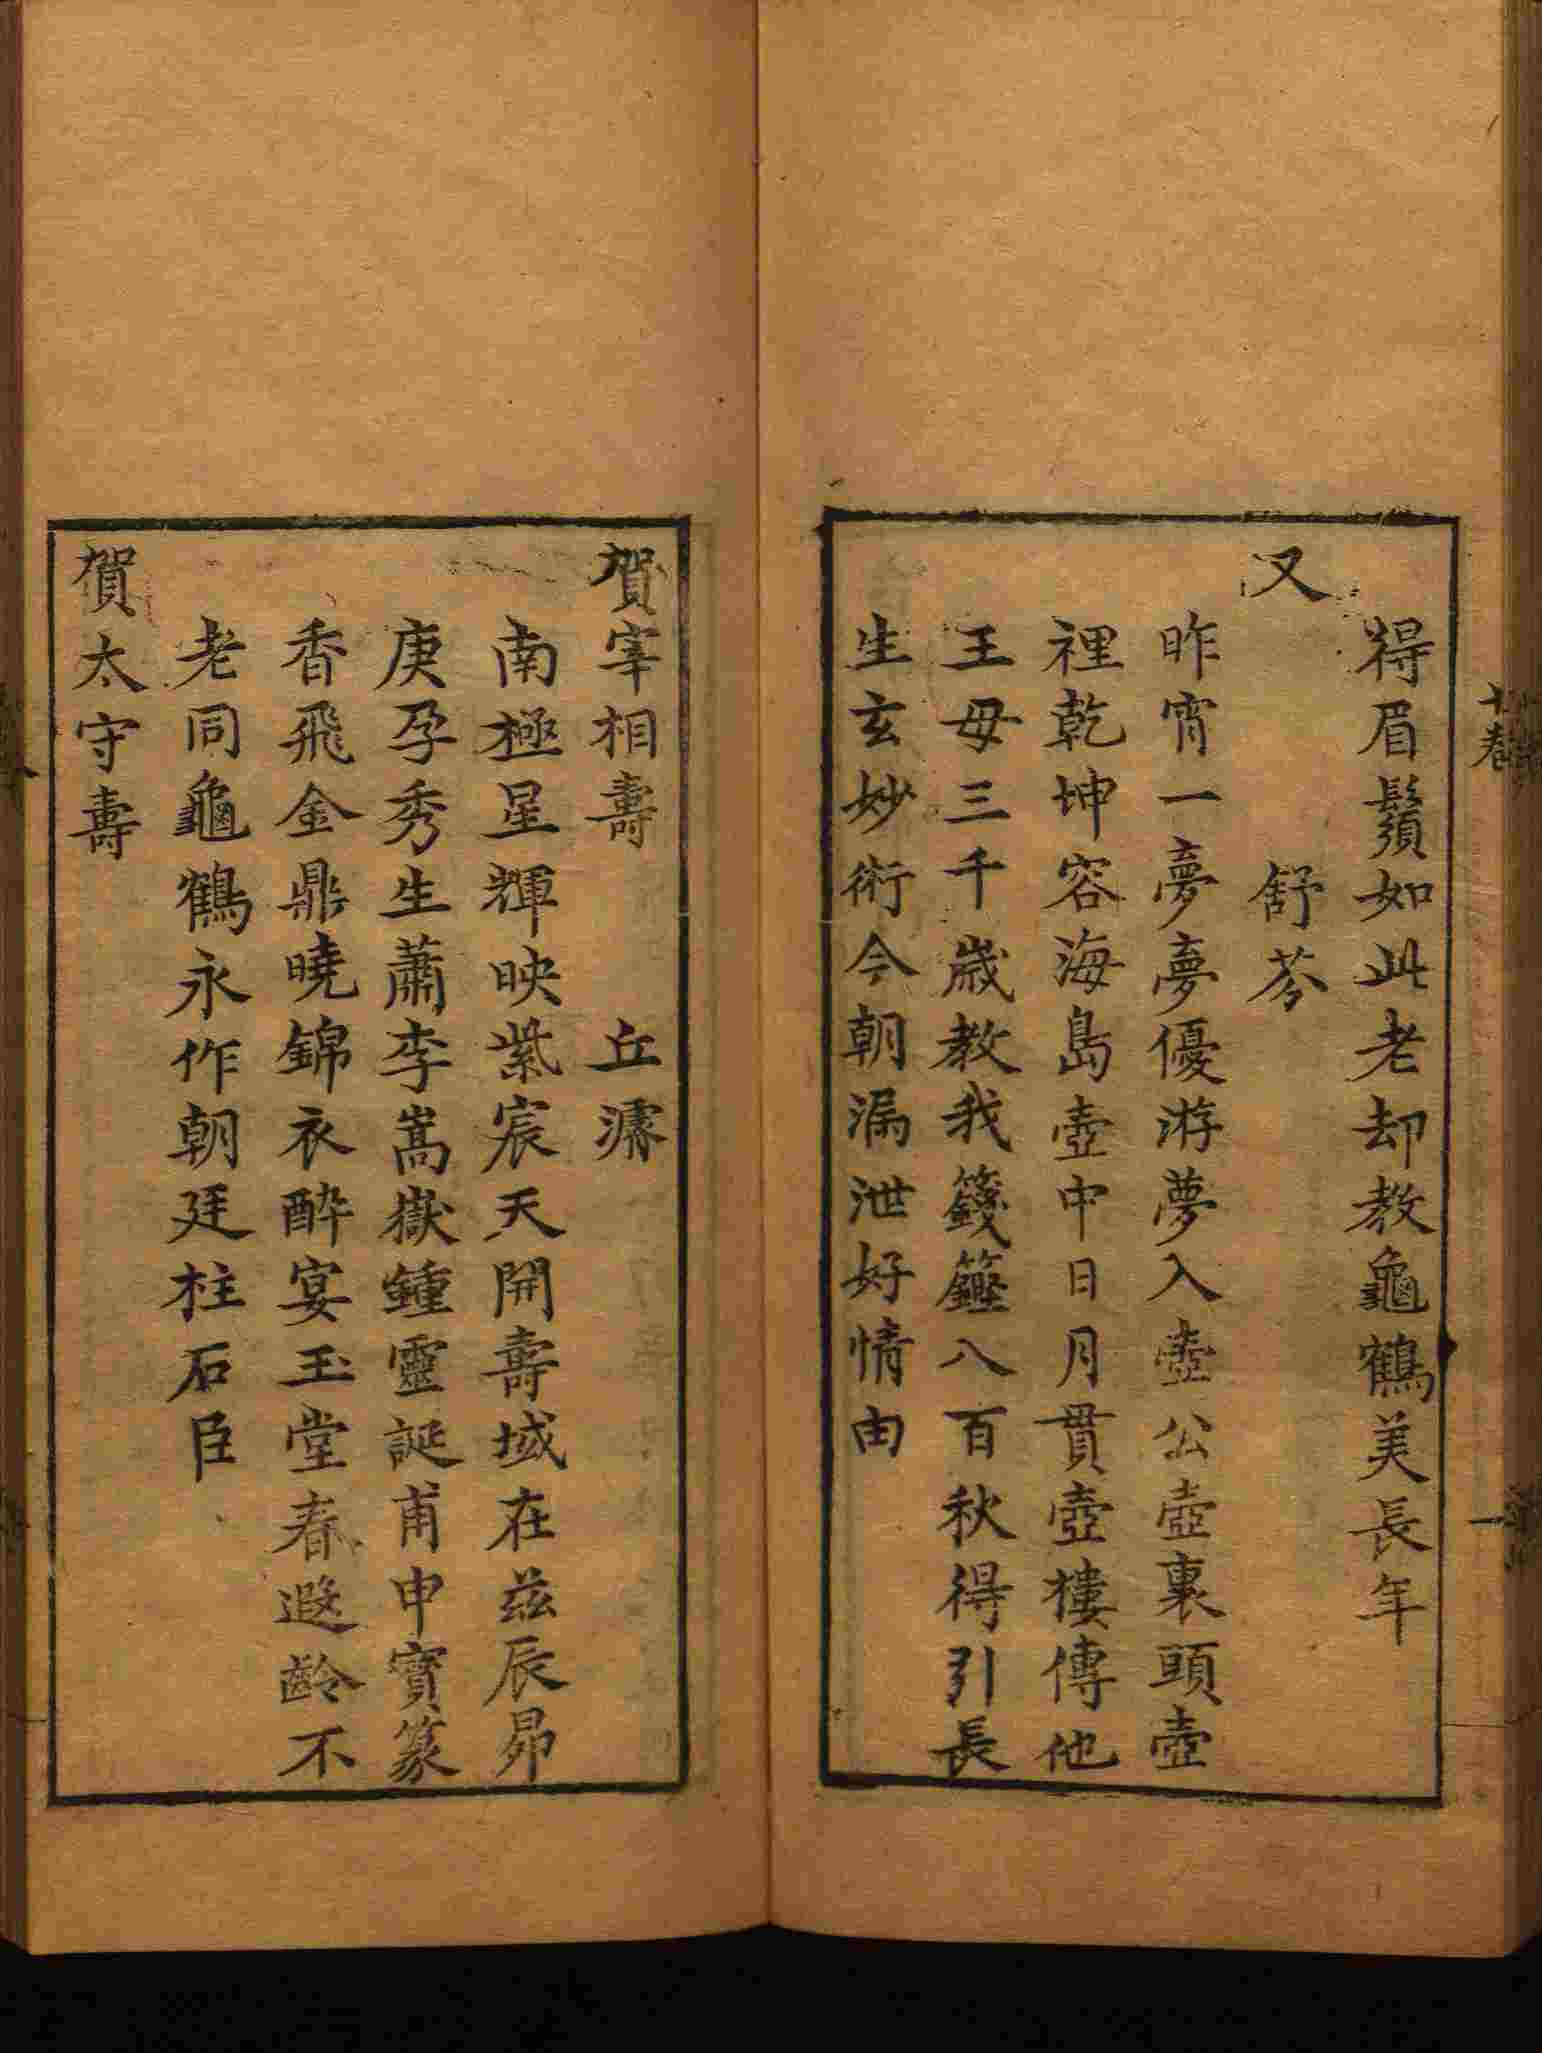 得眉鬚如此老却教龜鶴美長年
又　舒芬
昨宵一夢夢優游夢入壺公壺裏頭壺
裡乾坤容海島壺中日月貫壺摟傳他
王母三千歲教我籛籛八百秋得引長
生玄妙術今朝漏泄好情由
賀宰相壽　丘濬
南極星輝映紫宸天開壽域在茲辰昴
庚孕秀生蕭李嵩嶽鍾靈誕甫申寶篆
香飛金鼎曉錦衣醉宴玉堂春遐齡不
老同龜鶴永作朝廷柱石臣
賀太守壽